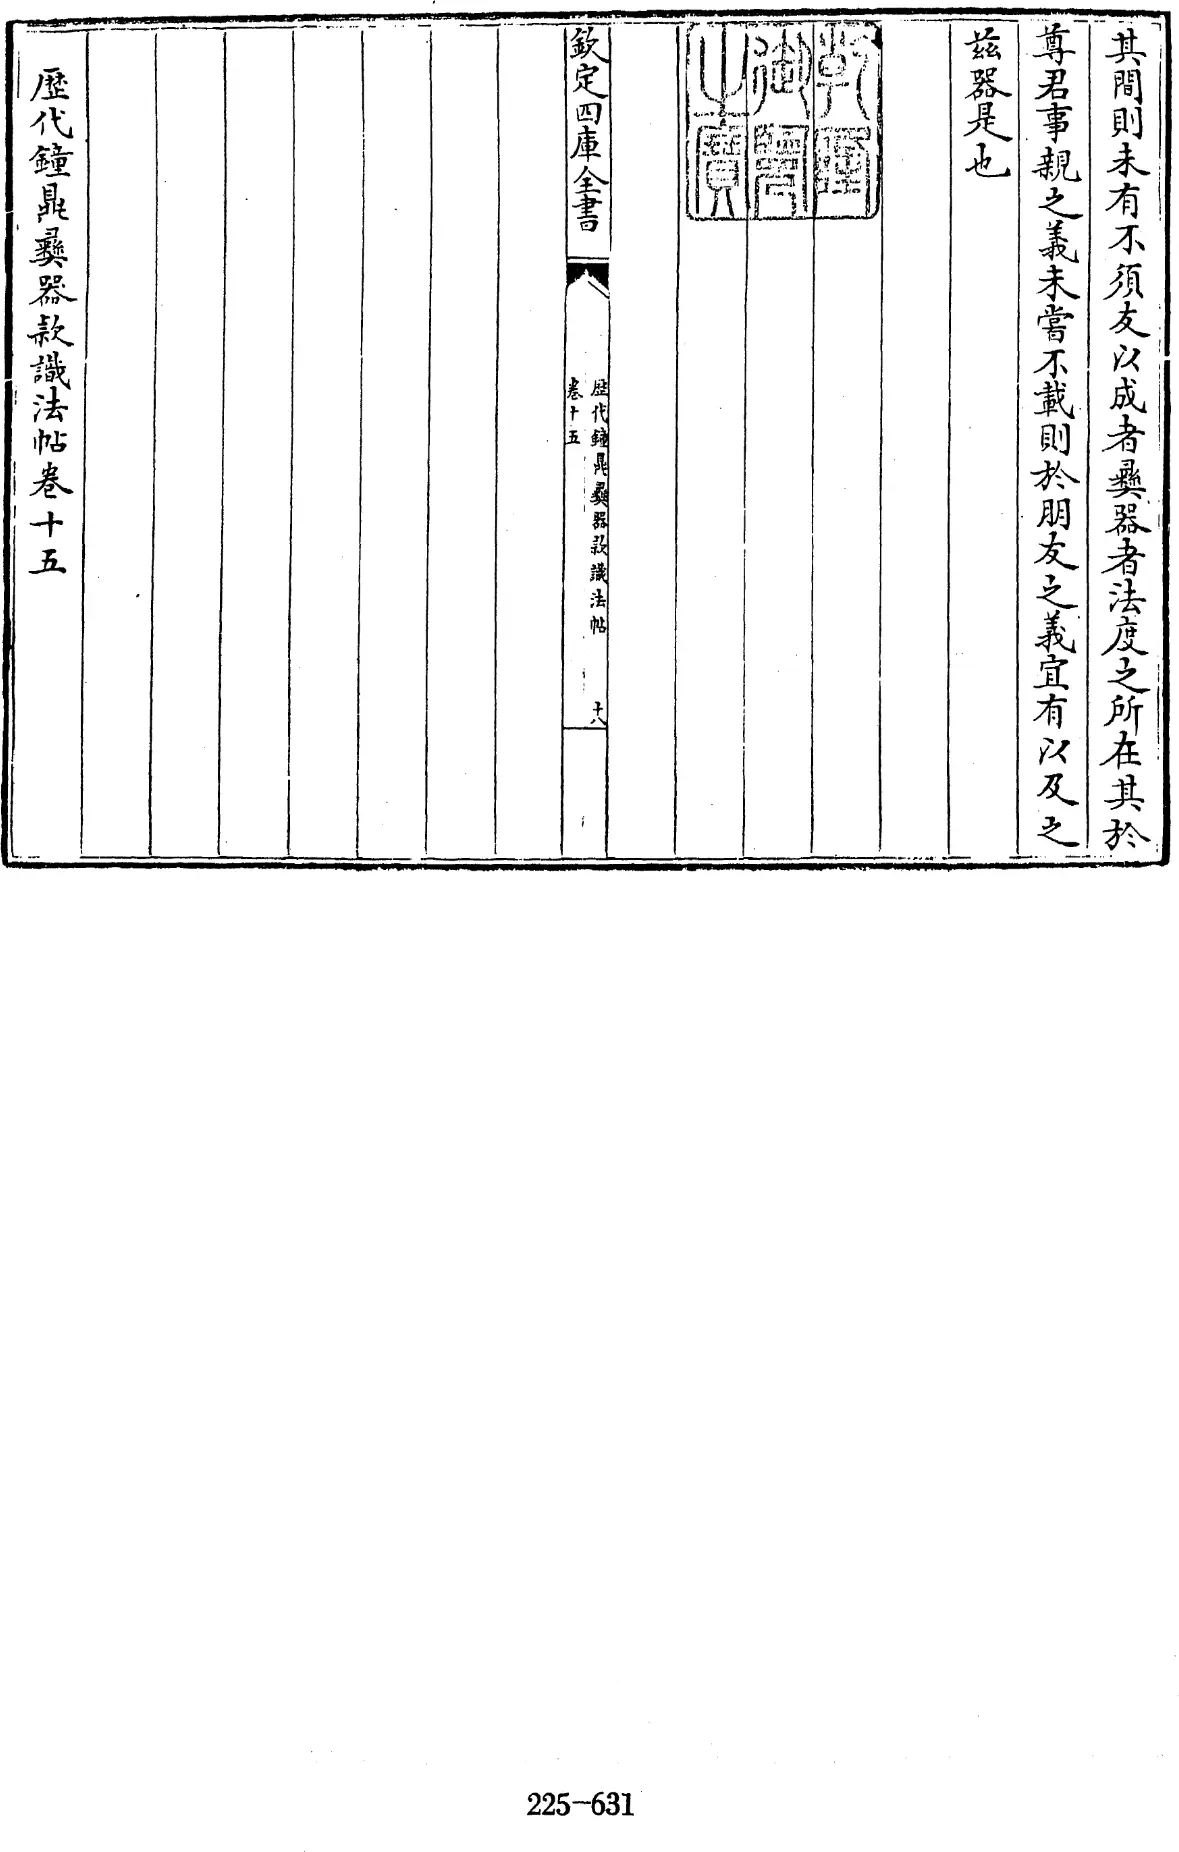 其間則未有不須友以成者彞器者法度之所在其於
尊君事親之義未嘗不載則於朋友之義宜有以及之
茲器是也
乾隆
御覽
之寶
欽定四庫全書
歴代鐘鼎彞器款識法帖
卷十五
十八
歴代鐘鼎彞器款識法帖卷十五
225-631